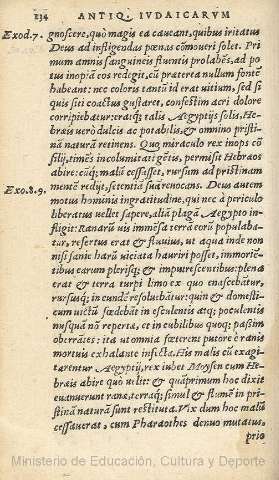 234 ANTIQ. IVDAICARVM
Exod.7. gnoscere, quò magis ea caueant, quibus iritatus
Deus ad infligendas pœnas cōmoueri solet. Pri
mum amnis sanguineis fluentis prolabēs, ad po
tus inopiā eos redegit, cū praeterea nullum fontē
habeant: nec coloris tantū id erat vitium, sed si
quis siti coactus gustaret, confestim acri dolore
corripiebatur: eratq; talis Aegyptijs solis, He-
braeis verò dulcis ac potabilis, & omnino pristi-
nā naturā retinens. Quo miraculo rex inops cō
silij, timēs incolumitati gētis, permisit Hebraeos
abire: cūq; malū cessasset, rursum ad pristinam
mentē redijt, setentiā suā reuocans. Deus autem
Exo.8.9. motus hominis ingratitudine, qui nec à periculo
liberatus uellet sapere, aliā plagā Aegypto in-
fligit: Ranarū uis immēsa terrā eorū populaba-
tur, refertus erat & fluuius, ut aqua inde non
nisi sanie harū uiciata hauriri posset, immorie-
tibus earum plerisq; & imputrescentibus: plena
erat & terra turpi limo ex quo enascebātur,
rursusq; in eundē resoluebātur: quin & domesti-
cum uictū fœdabāt in esculentis atq; poculentis
nusquā nō repertæ, et in cubilibus quoq; passim
oberrātes: ita ut omnia fœterent putore è ranis
mortuis exhalante infecta. His malis cū exagi-
tarētur Aegyptij, rex iubet Moysen cum He-
braeis abire quò uelit: & quāprimum hoc dixit
euanuerunt ranæ, terraq; simul & flumē in pri-
stinā naturā sunt restituta. Vix dum hoc malū
cessauerat, cum Pharaothes denuo mutatus,
prio
Ministerio de Educación, Cultura y Deporte